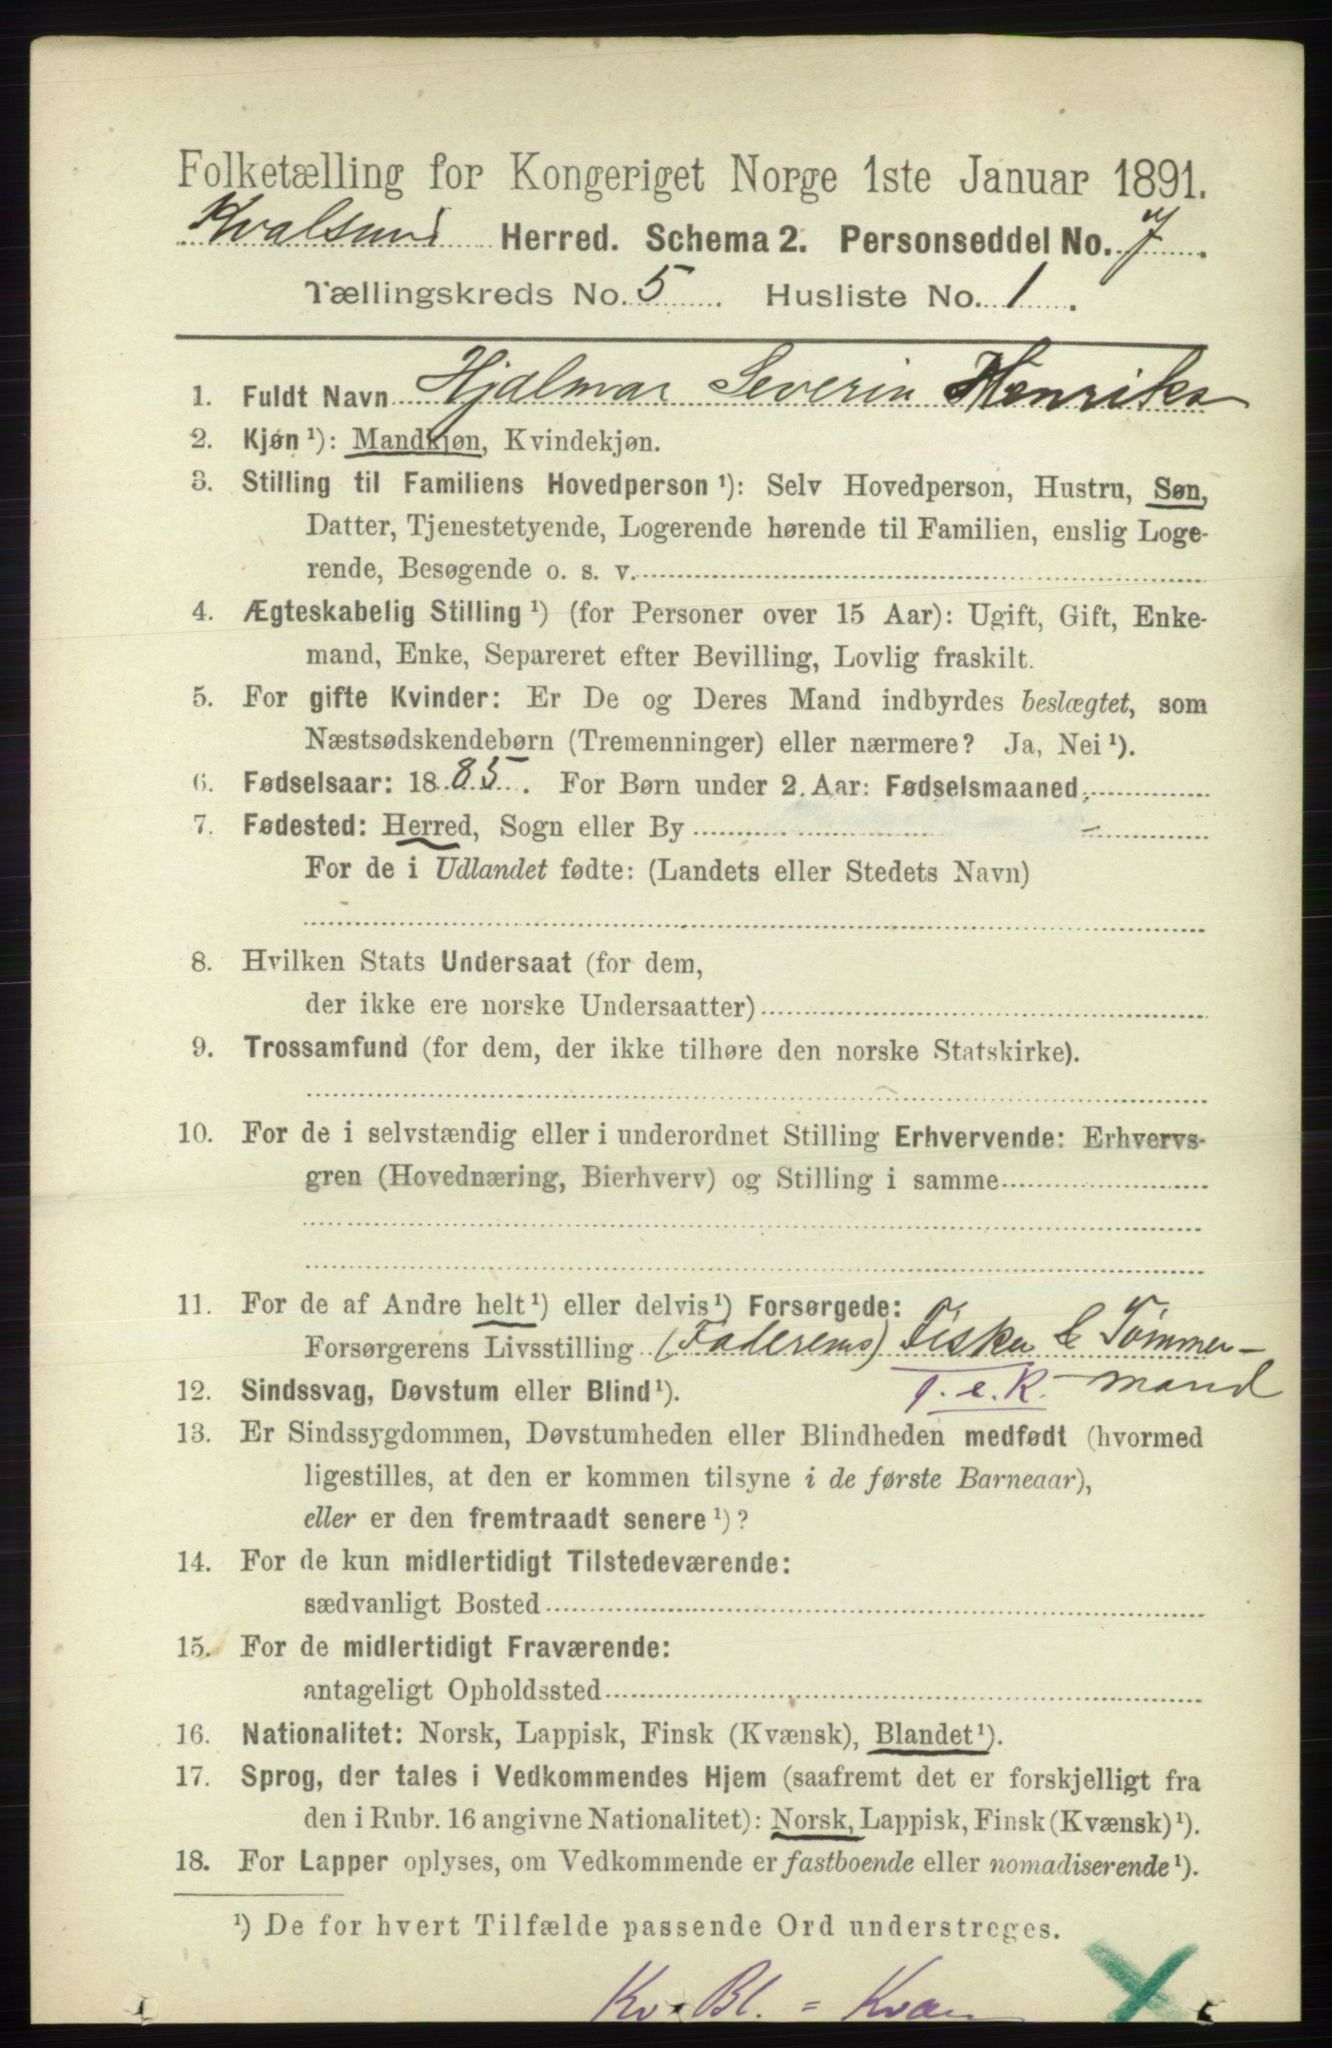 Folketælling for Kongeriget Norge 1ste Januar 1891.
Kvalsund Herred. Schema 2. Personseddel No. 7.
Tællingskreds No. 5. Husliste No. 1.
1. Fuldt Navn Hjalmar Severin Henriks
2. Kjøn¹): Mandkjøn, Kvindekjøn.
3. Stilling til Familiens Hovedperson¹): Selv Hovedperson, Hustru, Søn,
Datter, Tjenestetyende, Logerende hørende til Familien, enslig Loge-
rende, Besøgende o. s. v.
4. Ægteskabelig Stilling¹) (for Personer over 15 Aar): Ugift, Gift, Enke-
mand, Enke, Separeret efter Bevilling, Lovlig fraskilt.
5. For gifte Kvinder: Er De og Deres Mand indbyrdes beslægtet, som
Næstsødskendebørn (Tremenninger) eller nærmere? Ja, Nei¹).
6. Fødselsaar: 1885. For Børn under 2 Aar: Fødselsmaaned
7. Fødested: Herred, Sogn eller By
For de i Udlandet fødte: (Landets eller Stedets Navn)
8. Hvilken Stats Undersaat (for dem,
der ikke ere norske Undersaatter)
9. Trossamfund (for dem, der ikke tilhøre den norske Statskirke).
10. For de i selvstændig eller i underordnet Stilling Erhvervende: Erhvervs-
gren (Hovednæring, Bierhverv) og Stilling i samme
11. For de af Andre helt¹) eller delvis¹) Forsørgede:
Forsørgerens Livsstilling (Faderens) Fisker & Tømmer-
12. Sindssvag, Døvstum eller Blind¹). T. e. R. - mand
13. Er Sindssygdommen, Døvstumheden eller Blindheden medfødt (hvormed
ligestilles, at den er kommen tilsyne i de første Barneaar),
eller er den fremtraadt senere¹)?
14. For de kun midlertidigt Tilstedeværende:
sædvanligt Bosted
15. For de midlertidigt Fraværende:
antageligt Opholdssted
16. Nationalitet: Norsk, Lappisk, Finsk (Kvænsk), Blandet¹).
17. Sprog, der tales i Vedkommendes Hjem (saafremt det er forskjelligt fra
den i Rubr. 16 angivne Nationalitet): Norsk, Lappisk, Finsk (Kvænsk)¹).
18. For Lapper oplyses, om Vedkommende er fastboende eller nomadiserende¹).
¹) De for hvert Tilfælde passende Ord understreges.
Kv. Bl. = Kvæn